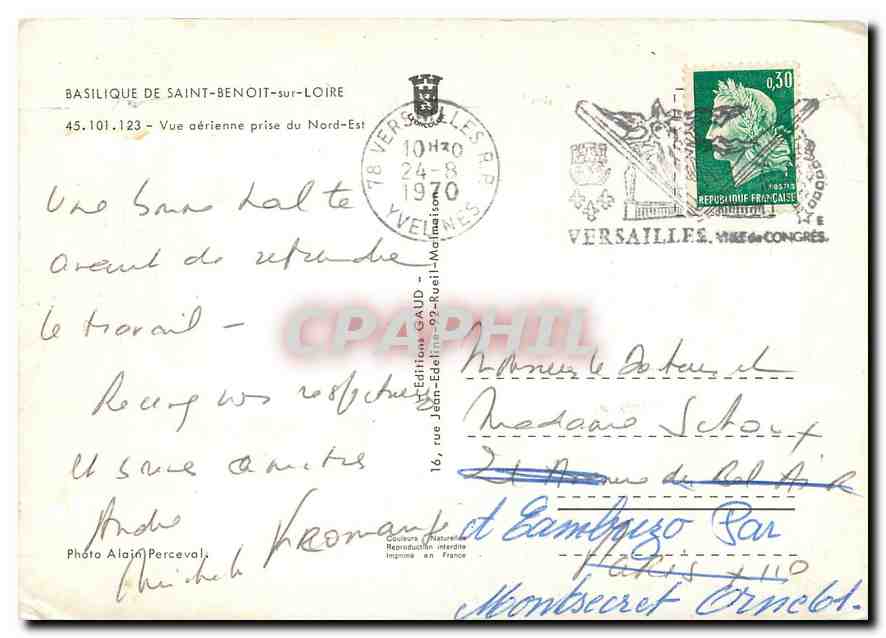 BASILIQUE DE SAINT-BENOIT-sur-LOIRE
45.101.123 - Vue aérienne prise du Nord-Est
78 VERSAILLES R.P.
10H30
24-8
1970
YVELINES
0,30
POSTES
REPUBLIQUE FRANÇAISE
VERSAILLES. VILLE de CONGRÈS.
Une bonne halte
avant de reprendre
le travail -
Recevez nos respectueux
et bonnes amitiés
André
Michèle
Photo Alain Perceval.
Editions GAUD -
16, rue Jean-Edeline-92-Rueil-Malmaison
Couleurs Naturelles
Reproduction interdite
Imprimé en France
CPAPHIL
Monsieur le Docteur et
Madame
21 Avenue du Bel Air
Par
PARIS XII
Montsecret Orne 61.